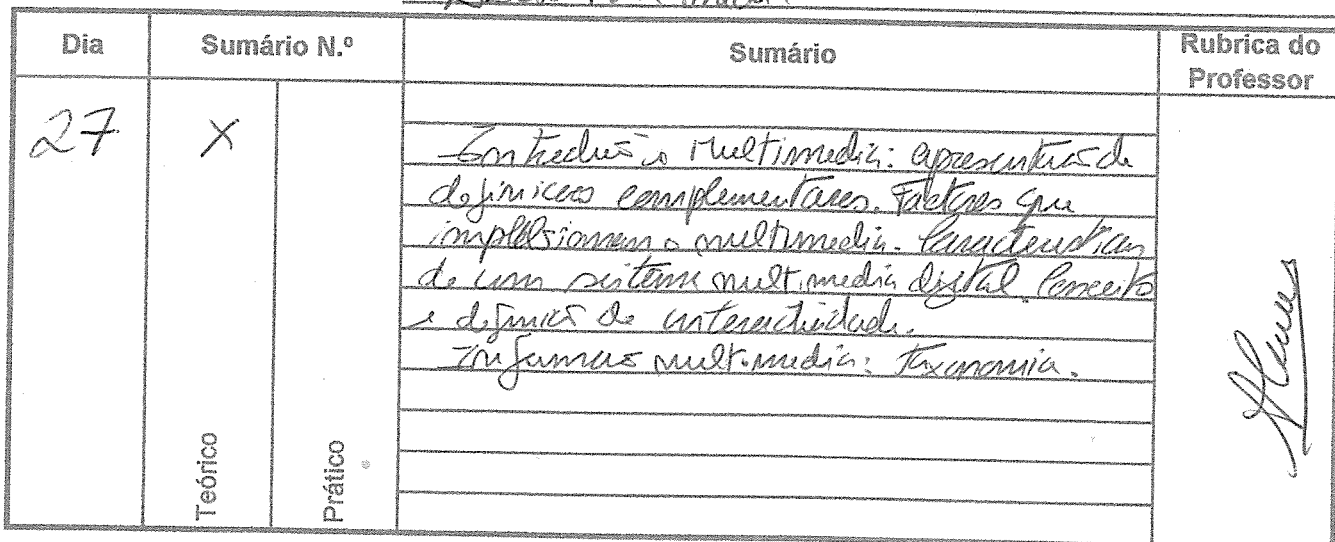 Dia Sumário N.º Sumário Rubrica do Professor
27 X Introdução à Multimedia: apresentação de
definições complementares. Factores que
impulsionam o multimedia. Características
de um sistema multimedia digital. Conceito
e definição de interactividade.
Informação multimedia: Taxonomia.
Teórico
Prático